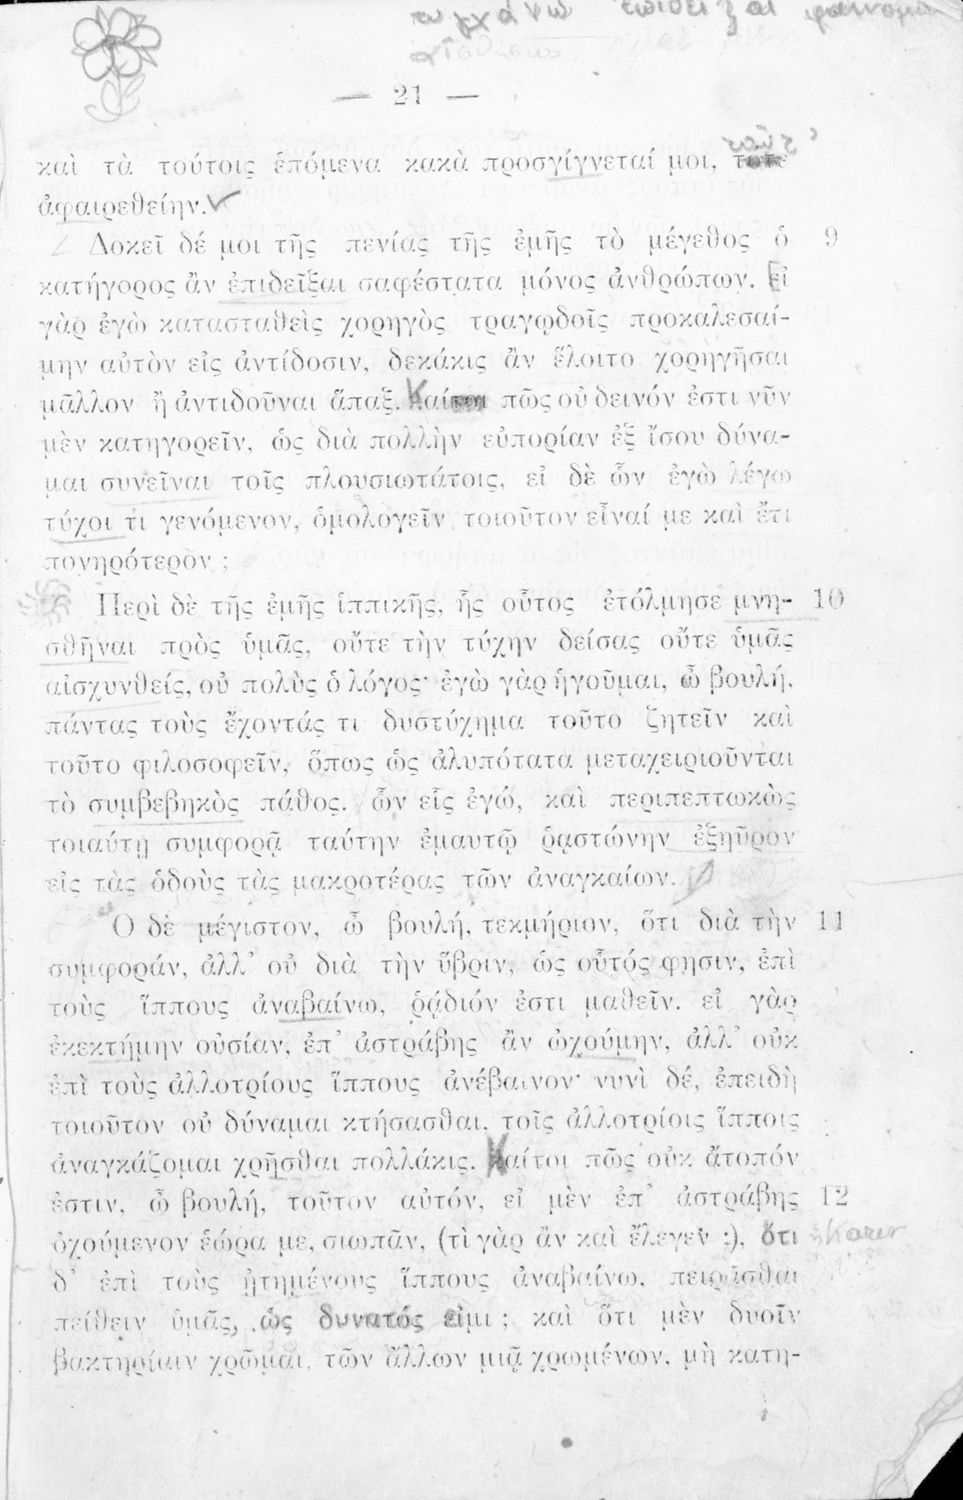 — 21 —
καὶ τὰ τούτοις ἑπόμενα κακὰ προσγίγνεταί μοι, τότε
ἀφαιρεθείην.
Δοκεῖ δέ μοι τῆς πενίας τῆς ἐμῆς τὸ μέγεθος ὁ 9
κατήγορος ἂν ἐπιδεῖξαι σαφέστατα μόνος ἀνθρώπων. Εἰ
γὰρ ἐγὼ κατασταθεὶς χορηγὸς τραγῳδοῖς προκαλεσαί-
μην αὐτὸν εἰς ἀντίδοσιν, δεκάκις ἂν ἕλοιτο χορηγῆσαι
μᾶλλον ἢ ἀντιδοῦναι ἅπαξ. Καίτοι πῶς οὐ δεινόν ἐστι νῦν
μὲν κατηγορεῖν, ὡς διὰ πολλὴν εὐπορίαν ἐξ ἴσου δύνα-
μαι συνεῖναι τοῖς πλουσιωτάτοις, εἰ δὲ ὧν ἐγὼ λέγω
τύχοι τι γενόμενον, ὁμολογεῖν τοιοῦτον εἶναί με καὶ ἔτι
πονηρότερον ;
Περὶ δὲ τῆς ἐμῆς ἱππικῆς, ἧς οὗτος ἐτόλμησε μνη- 10
σθῆναι πρὸς ὑμᾶς, οὔτε τὴν τύχην δείσας οὔτε ὑμᾶς
αἰσχυνθείς, οὐ πολὺς ὁ λόγος· ἐγὼ γὰρ ἡγοῦμαι, ὦ βουλή,
πάντας τοὺς ἔχοντάς τι δυστύχημα τοῦτο ζητεῖν καὶ
τοῦτο φιλοσοφεῖν, ὅπως ὡς ἀλυπότατα μεταχειριοῦνται
τὸ συμβεβηκὸς πάθος. ὧν εἷς ἐγώ, καὶ περιπεπτωκὼς
τοιαύτῃ συμφορᾷ ταύτην ἐμαυτῷ ῥᾳστώνην ἐξηῦρον
εἰς τὰς ὁδοὺς τὰς μακροτέρας τῶν ἀναγκαίων.
Ὃ δὲ μέγιστον, ὦ βουλή, τεκμήριον, ὅτι διὰ τὴν 11
συμφοράν, ἀλλ' οὐ διὰ τὴν ὕβριν, ὡς οὗτός φησιν, ἐπὶ
τοὺς ἵππους ἀναβαίνω, ῥᾴδιόν ἐστι μαθεῖν. εἰ γὰρ
ἐκεκτήμην οὐσίαν, ἐπ' ἀστράβης ἂν ὠχούμην, ἀλλ' οὐκ
ἐπὶ τοὺς ἀλλοτρίους ἵππους ἀνέβαινον· νυνὶ δέ, ἐπειδὴ
τοιοῦτον οὐ δύναμαι κτήσασθαι, τοῖς ἀλλοτρίοις ἵπποις
ἀναγκάζομαι χρῆσθαι πολλάκις. Καίτοι πῶς οὐκ ἄτοπόν
ἐστιν, ὦ βουλή, τοῦτον αὐτόν, εἰ μὲν ἐπ' ἀστράβης 12
ὀχούμενον ἑώρα με, σιωπᾶν, (τί γὰρ ἂν καὶ ἔλεγεν ;), ὅτι
δ' ἐπὶ τοὺς ᾐτημένους ἵππους ἀναβαίνω, πειρᾶσθαι
πείθειν ὑμᾶς, ὡς δυνατός εἰμι ; καὶ ὅτι μὲν δυοῖν
βακτηρίαιν χρῶμαι, τῶν ἄλλων μιᾷ χρωμένων, μὴ κατη-